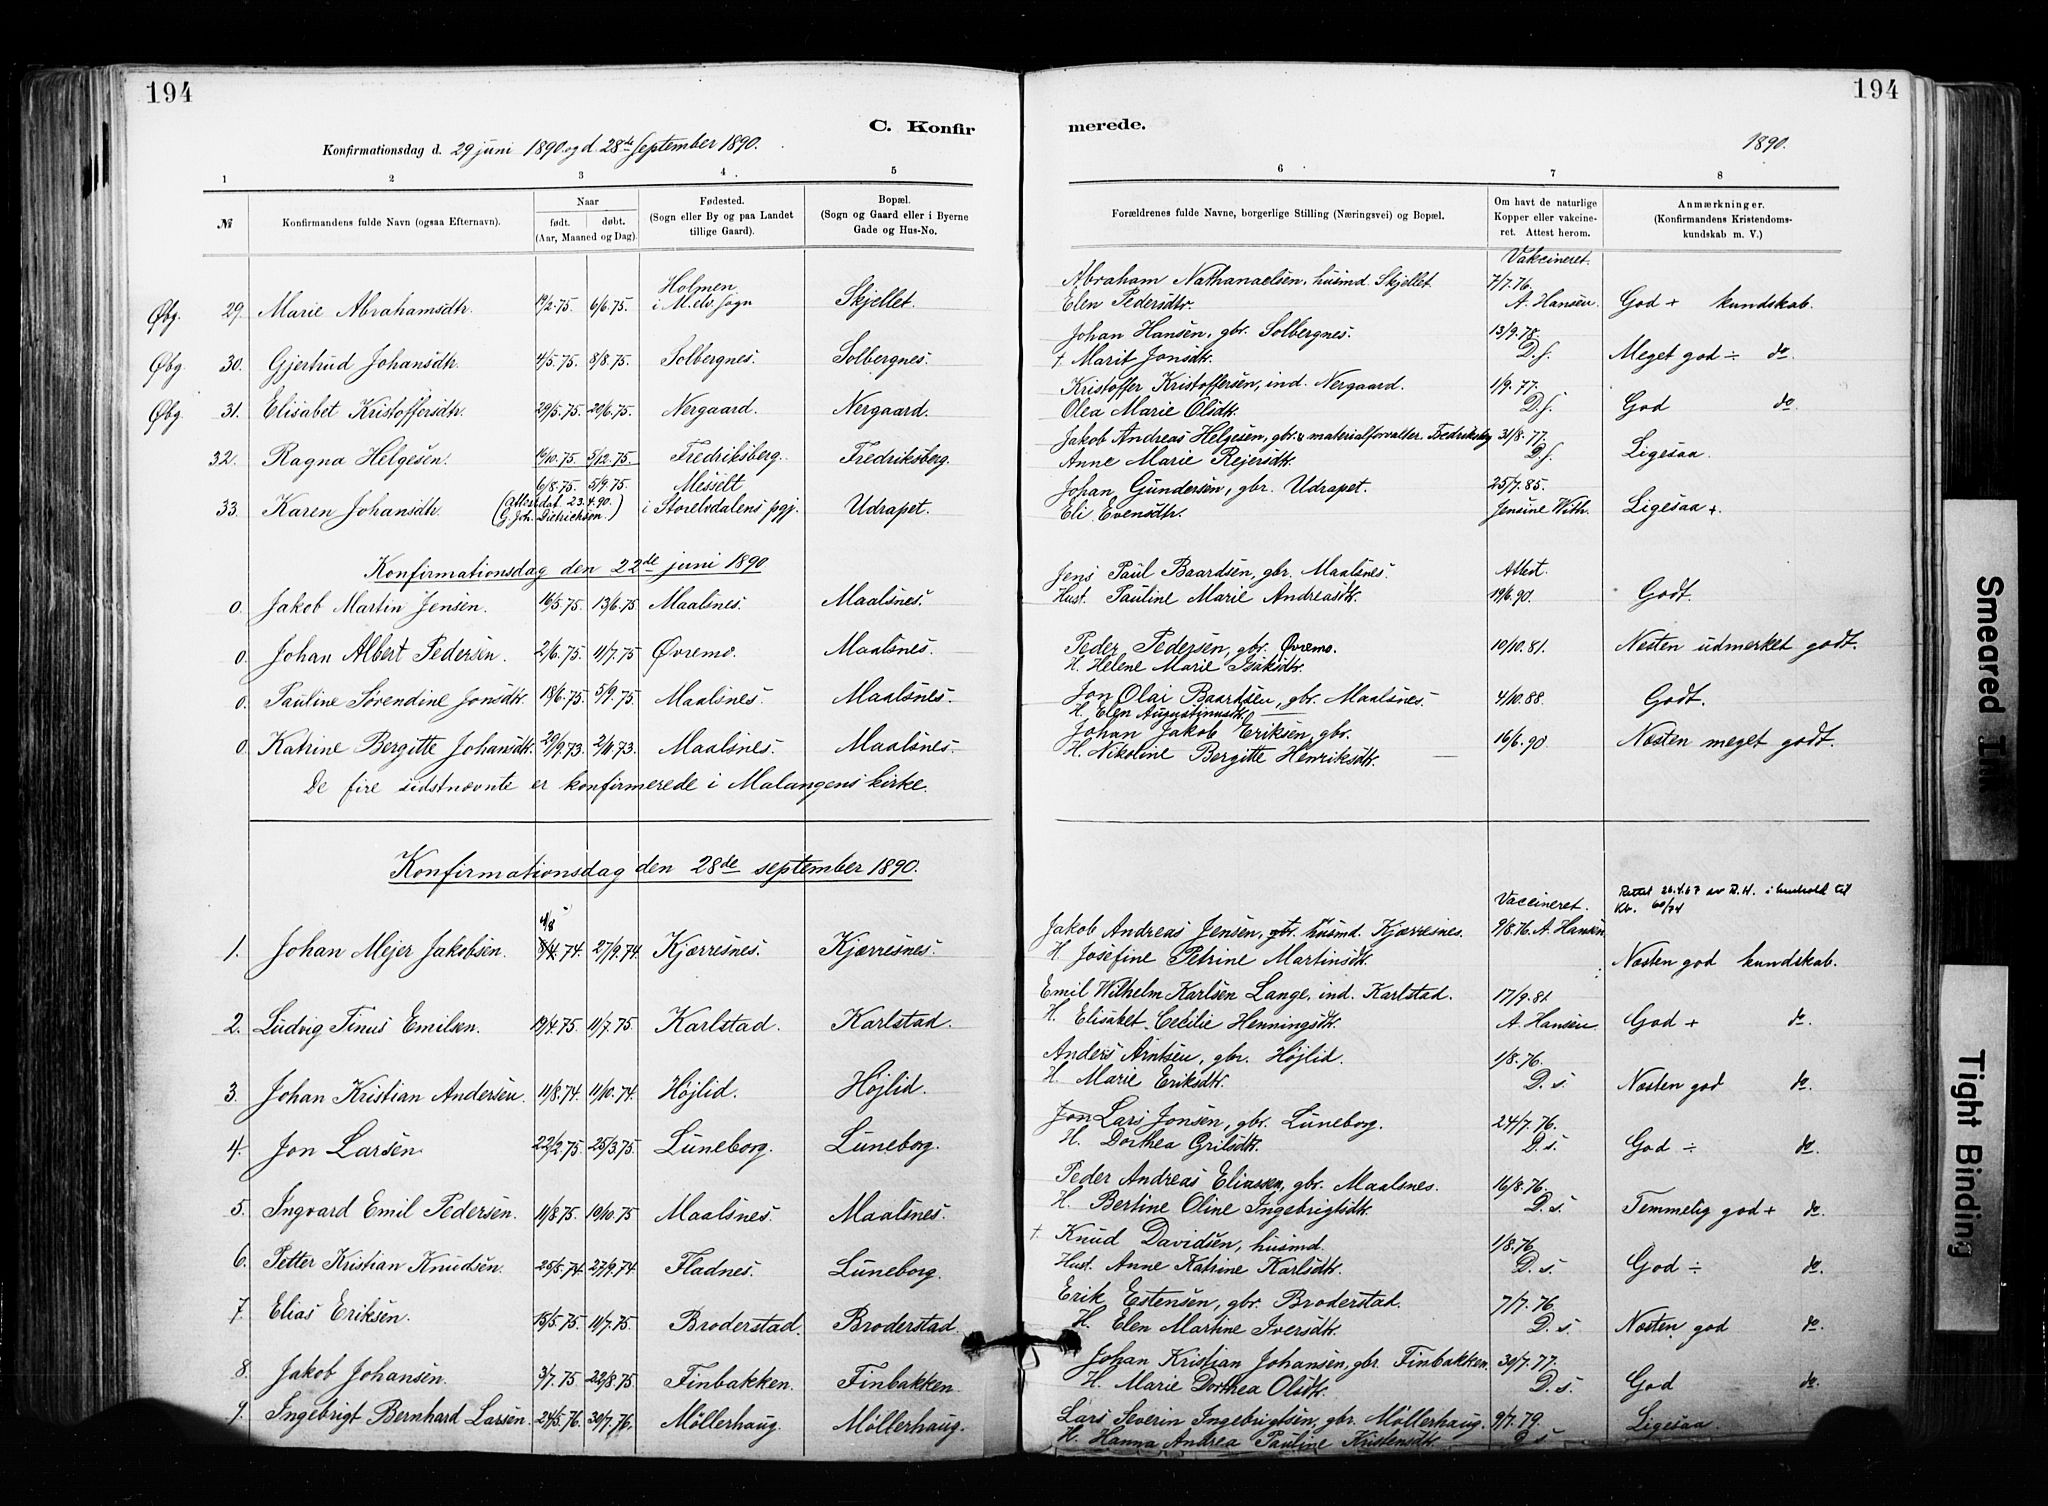 194
C. Konfir
Konfirmationsdag d. 29 juni 1890. og d. 28de September 1890.
1 2 3 4 5
№ Konfirmandens fulde Navn (ogsaa Efternavn). Naar født. døbt. (Aar, Maaned og Dag). Fødested. (Sogn eller By og paa Landet tillige Gaard). Bopæl. (Sogn og Gaard eller i Byerne Gade og Hus-No.
Holmen
Øbg. 29. Marie Abrahamsdtr. 6/6.75. i M.elv. sogn Skjellet.
Øbg. 30. Gjertrud Johansdtr. 4/5.75. 8/8.75. Solbergnes. Solbergnes.
Øbg. 31. Elisabet Kristoffersdtr. 29/5.75. 20/6.75. Nergaard. Nergaard.
32. Ragna Helgesen. 5/12.75. Fredriksberg. Fredriksberg.
6/8.75. 5/9.75. Messelt
33. Karen Johansdtr. (Attest dat. 23.4.90. i Storelvdalens pgj. Udrapet.
G. Joh. Dietrichson.)
Konfirmationsdag den 22de juni 1890
0. Jakob Martin Jensen. 16/5.75. 13/6.75 Maalsnes. Maalsnes.
0. Johan Albert Pedersen. 2/6.75. 11/7.75 Øvremo. Maalsnes.
0. Pauline Sørendine Jonsdtr. 18/6.75. 5/9.75. Maalsnes. Maalsnes.
0. Katrine Bergitte Johansdtr. 29/9.73. 2/11.73. Maalsnes. Maalsnes.
De fire sidstnævnte er konfirmerede i Malangens kirke.
Konfirmationsdag den 28de september 1890.
4/8
1. Johan Mejer Jakobsen. 8/4.74. 27/9.74. Kjærresnes. Kjærresnes.
2. Ludvig Tinus Emilsen. 19/4.75. 11/7.75. Karlstad. Karlstad.
3. Johan Kristian Andersen. 11/8.74. 11/10.74. Højlid. Højlid.
4. Jon Larsen. 22/2.75. 25/3.75. Lüneborg. Lüneborg.
5. Ingvard Emil Pedersen. 11/8.75. 19/10.75 Maalsnes. Maalsnes.
6. Petter Kristian Knudsen. 25/5.74. 27/9.74. Fladnes. Lüneborg.
7. Elias Eriksen. 15/5.75. 11/7.75. Broderstad. Broderstad.
8. Jakob Johansen. 3/7.75. 22/8.75. Finbakken. Finbakken.
9. Ingebrigt Bernhard Larsen. 24/5.76. 30/7.76. Möllerhaug. Möllerhaug.
194
merede.
1890.
6 7 8
Forældrenes fulde Navne, borgerlige Stilling (Næringsvei) og Bopæl. Om havt de naturlige Kopper eller vakcineret. Attest herom. Anmærkninger. (Konfirmandens Kristendomskundskab m. V.)
Vakcineret.
Abraham Nathanaelsen, husmd. Skjellet 7/7.76.
Elen Pedersdtr. A. Hansen. God + kundskab.
Johan Hansen, gbr. Solbergnes. 13/9.78.
† Marit Jonsdtr. D.s. Meget god ÷ do.
Kristoffer Kristoffersen, ind. Nergaard. 1/9.77.
Olea Marie Olsdtr. D.s. God do.
Jakob Andreas Helgesen, gbr. & materialforvalter. Fredriksbg 31/8.77.
Anne Marie Rejersdtr. D.s. Ligesaa.
Johan Gundersen, gbr. Udrapet. 25/7.85.
Eli Evensdtr. Jensine With. Ligesaa +.
Jens Paul Baardsen, gbr. Maalsnes. Attest.
Hust. Pauline Marie Andreasdtr. 19/6.90. Godt.
Peder Pedersen, gbr. Øvremo. 10/10.81. Nesten udmerket godt.
H. Helene Marie Isaksdtr.
Jon Olai Baardsen, gbr. Maalsnes. 4/10.88. Godt.
H. Elen Augustinusdtr.
Johan Jakob Eriksen, gbr. 16/6.90. Nesten meget godt.
H. Nikoline Bergitte Henriksdtr.
Vaccineret. Rettet 26.4.67 av R.H. i henhold til
Kb. 60/74
Jakob Andreas Jensen, gbr. husmd. Kjærresnes. 9/8.76. A. Hansen
H. Josefine Petrine Martinsdtr. Nesten god kundskab.
Emil Wilhelm Karlsen Lange, ind. Karlstad. 17/9.81.
H. Elisabet Cecilie Henningsdtr. A. Hansen. God + do.
Anders Arntsen, gbr. Højlid. 1/8.76.
H. Marie Eriksdtr. D.s. Nesten god do.
Jon Lars Jonsen, gbr. Lüneborg. 24/7.76.
H. Dorthea Grilsdtr. D.s. God ÷ do.
Peder Andreas Eliassen, gbr. Maalsnes. 16/8.76.
H. Bertine Oline Ingebrigtsdtr. D.s. Temmelig god + do.
† Knud Davidsen, husmd. 1/8.76
Hust. Anne Katrine Karlsdtr. D.s. God ÷ do.
Erik Estensen, gbr. Broderstad. 7/7.76
H. Elen Martine Iversdtr. D.s. Nesten god do.
Johan Kristian Johansen, gbr. Finbakken. 30/7.77.
H. Marie Dorthea Olsdtr. D.s. God do.
Lars Severin Ingebrigtsen, gbr. Möllerhaug. 9/7.79. Ligesaa.
H. Hanna Andrea Pauline Kristensdtr. D.s
Smeared Ink
Tight Binding